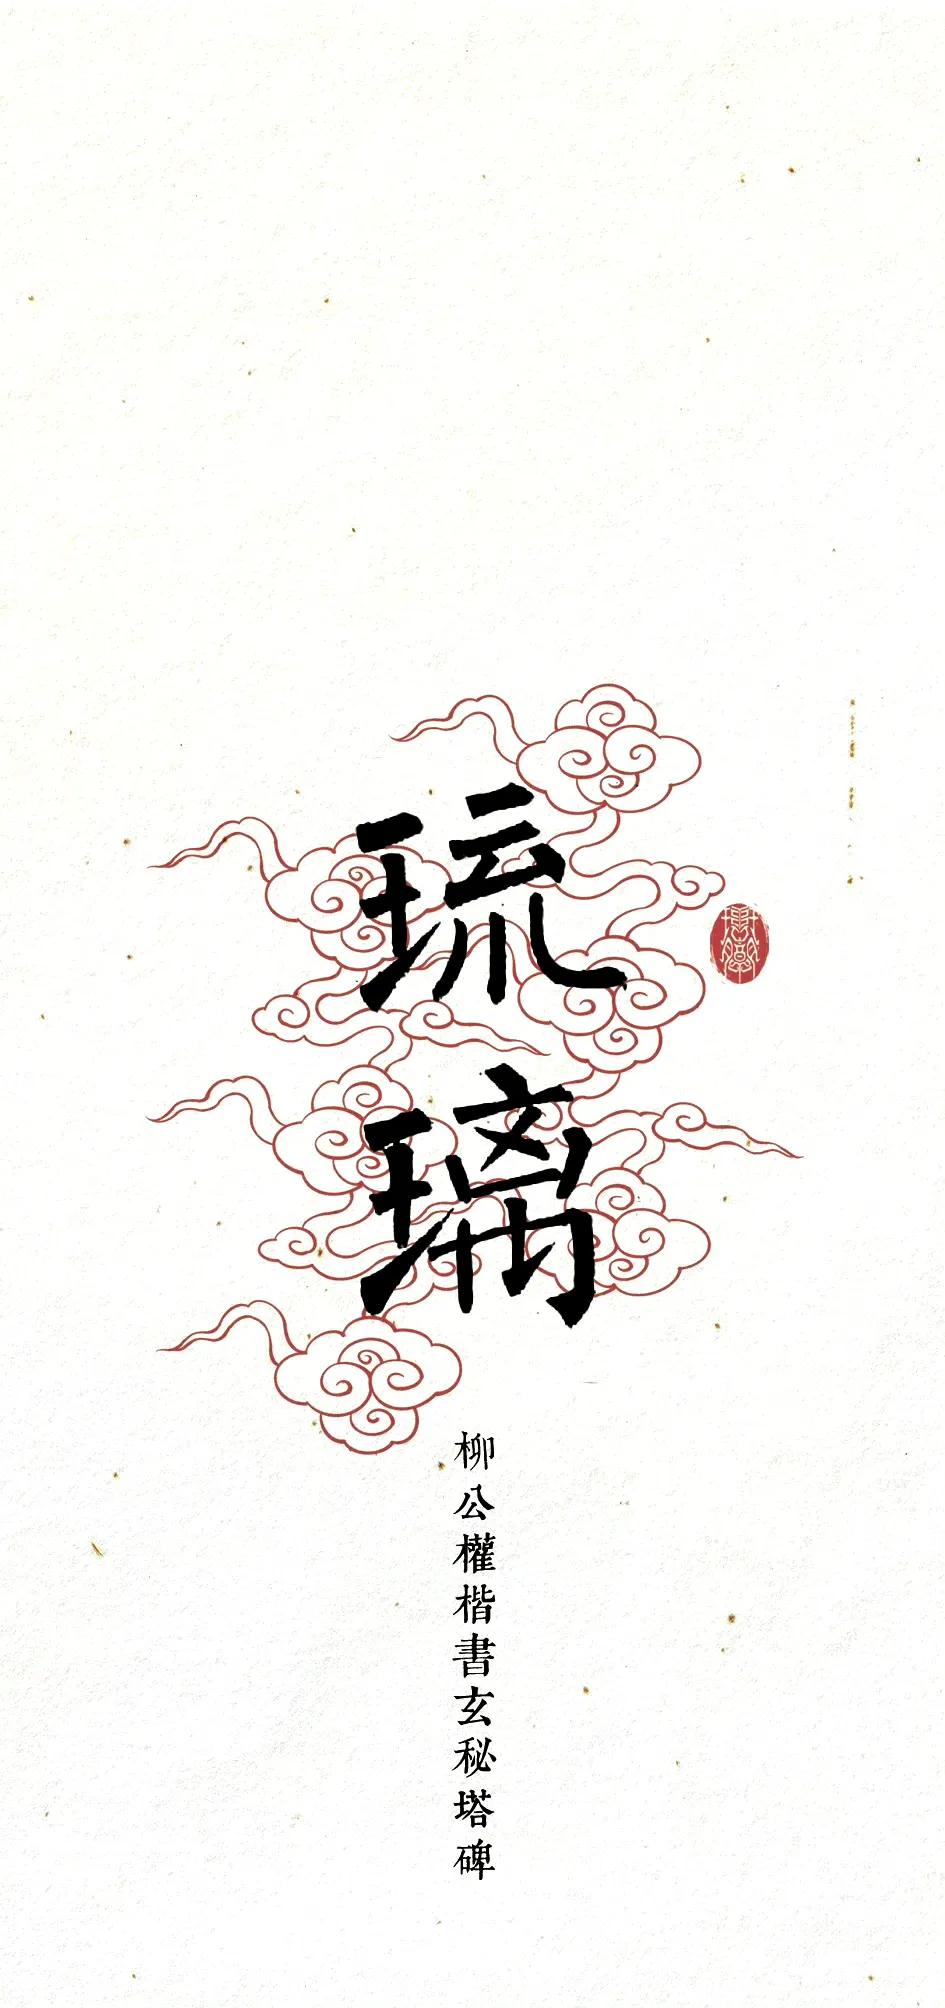 琉璃
柳公權楷書玄秘塔碑